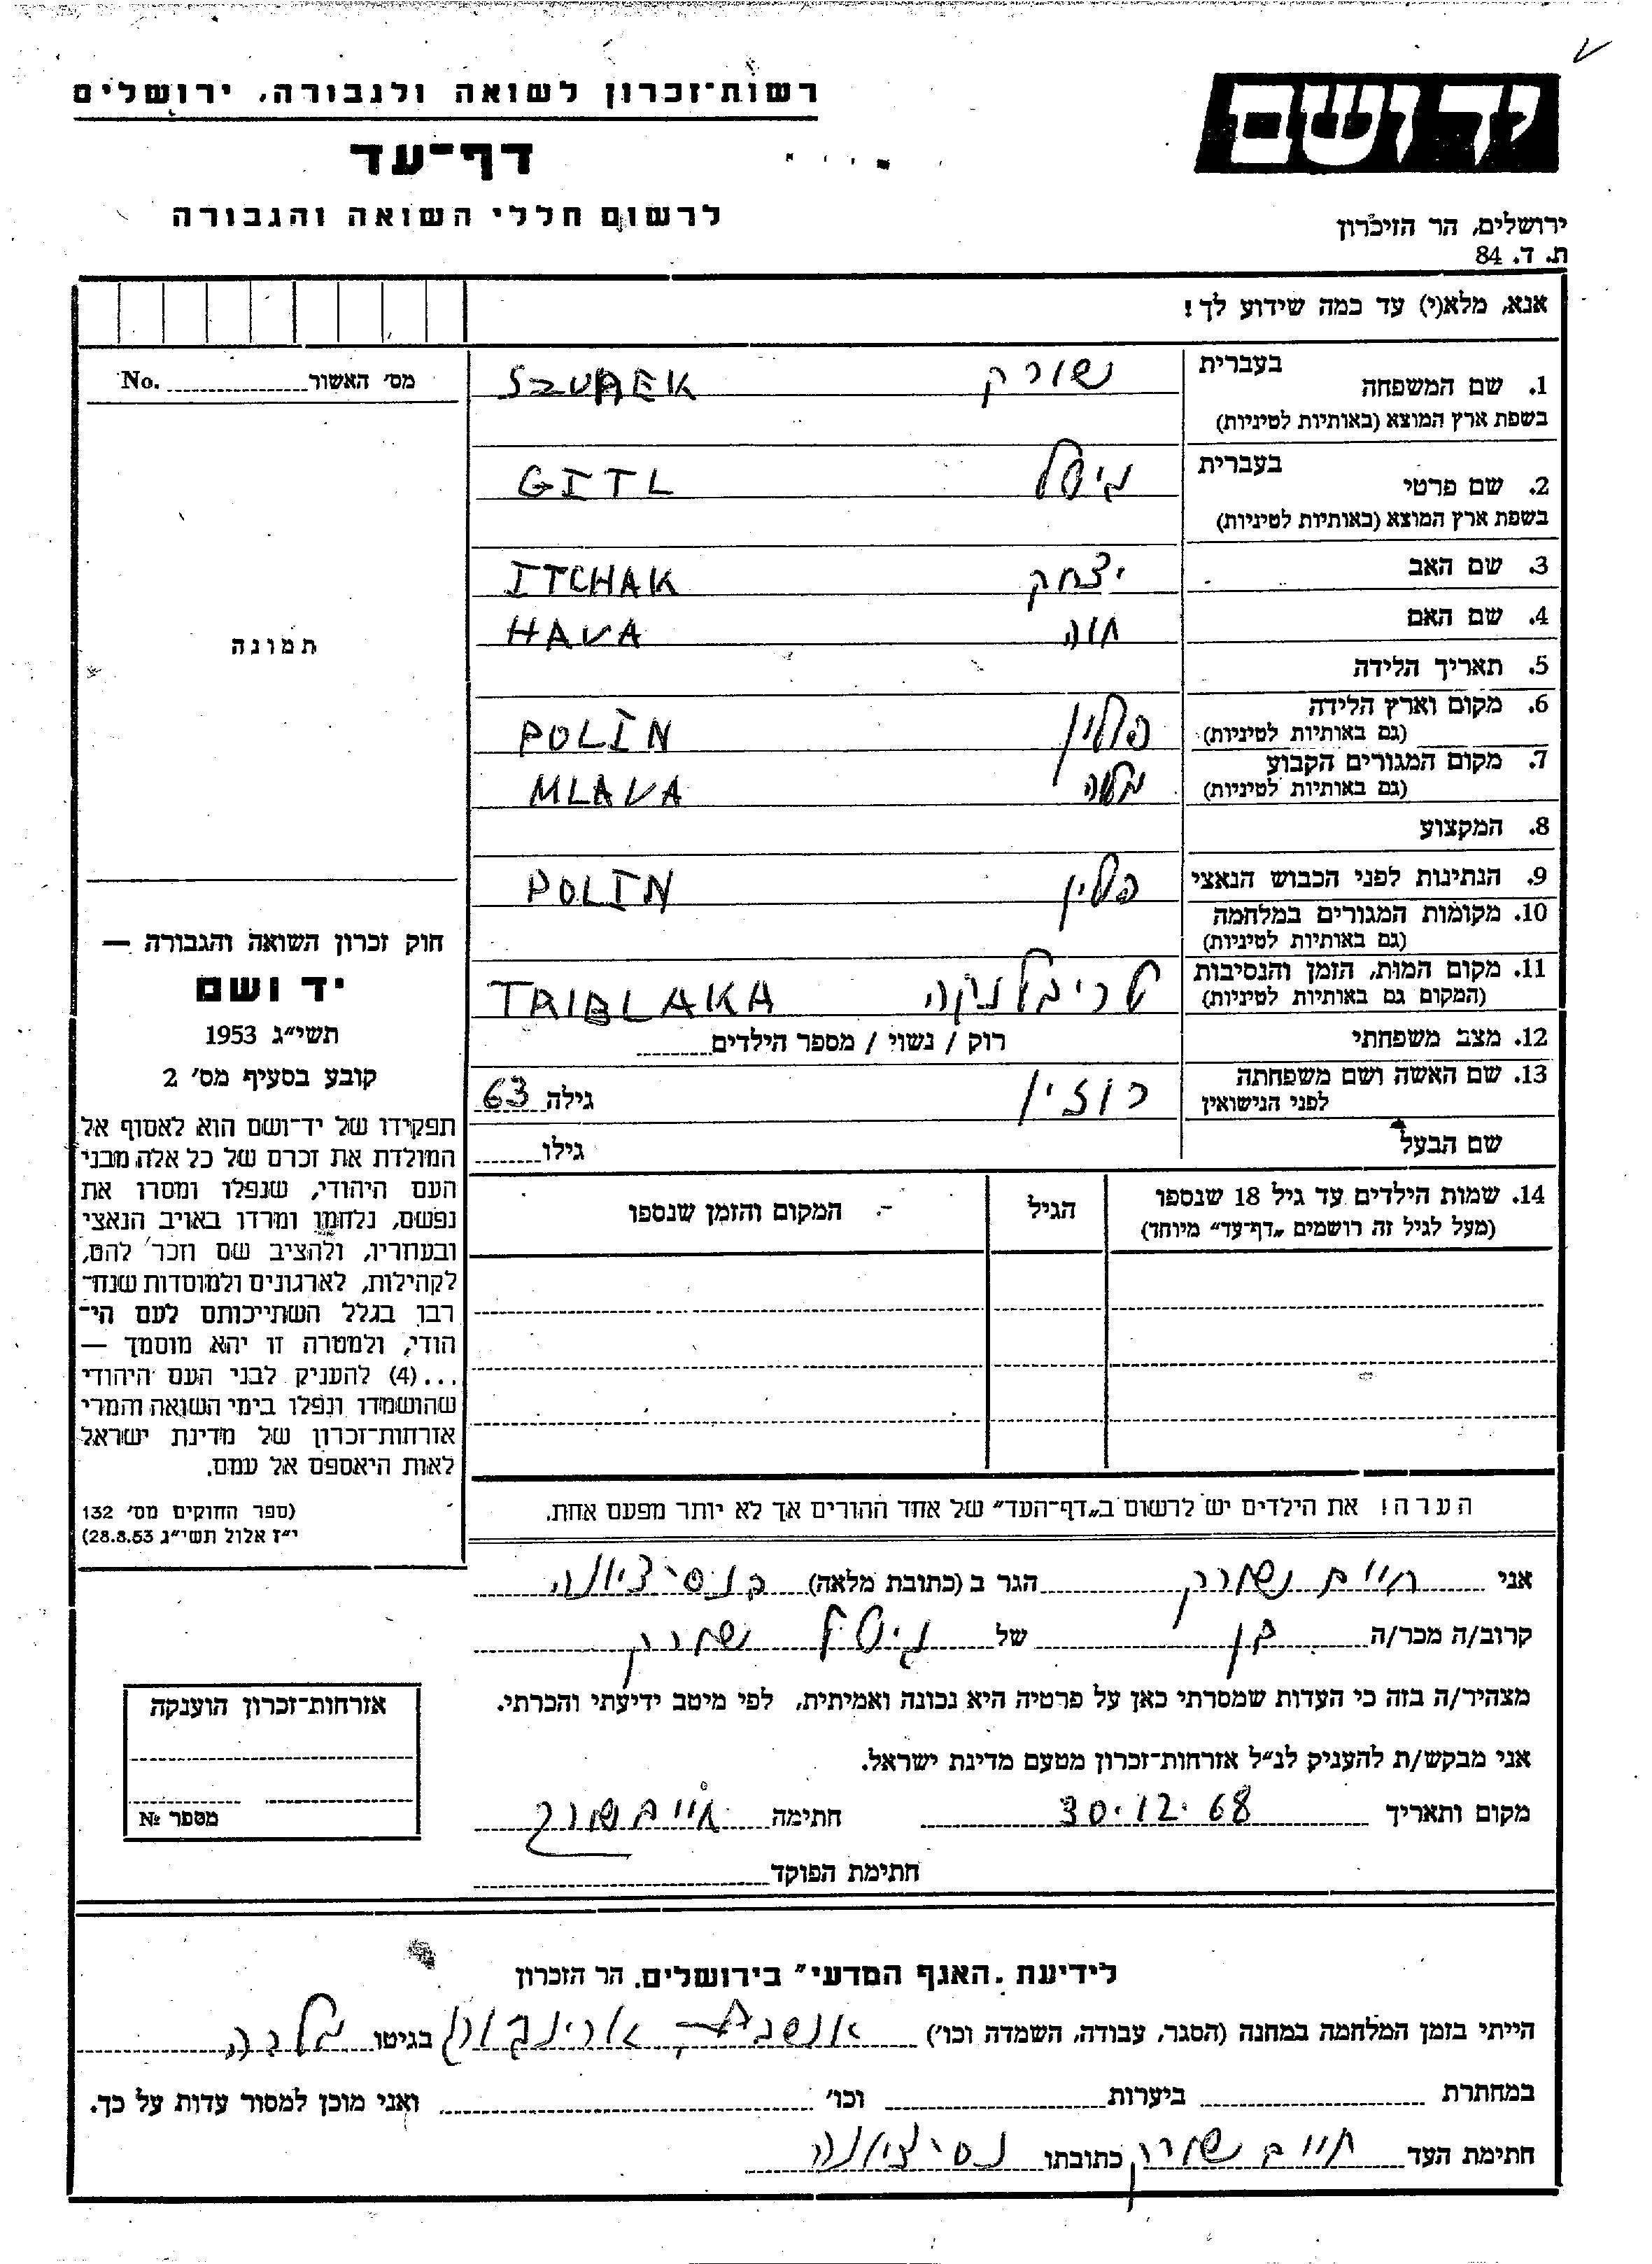 רשות־זכרון לשואה ולגבורה, ירושלים
דף־עד
לרשום חללי השואה והגבורה
יד ושם
ירושלים, הר הזיכרון
ת. ד. 84
אנא, מלא(י) עד כמה שידוע לך!
1. שם המשפחה בעברית שורק SZUREK
בשפת ארץ המוצא (באותיות לטיניות)
2. שם פרטי בעברית גיטל GITL
בשפת ארץ המוצא (באותיות לטיניות)
3. שם האב יצחק ITCHAK
4. שם האם חוה HAVA
5. תאריך הלידה
6. מקום וארץ הלידה פולין POLIN
(גם באותיות לטיניות)
7. מקום המגורים הקבוע מלווה MLAVA
(גם באותיות לטיניות)
8. המקצוע
9. הנתינות לפני הכבוש הנאצי פולין POLIN
10. מקומות המגורים במלחמה
(גם באותיות לטיניות)
11. מקום המות, הזמן והנסיבות טריבלנקה TRIBLAKA
(המקום גם באותיות לטיניות)
12. מצב משפחתי רוק / נשוי / מספר הילדים
13. שם האשה ושם משפחתה רוזין גילה 63
לפני הנישואין
שם הבעל גילו
14. שמות הילדים עד גיל 18 שנספו הגיל המקום והזמן שנספו
(מעל לגיל זה רושמים "דף־עד" מיוחד)
הערה! את הילדים יש לרשום ב"דף־העד" של אחד ההורים אך לא יותר מפעם אחת.
מס׳ האשור No.
תמונה
חוק זכרון השואה והגבורה —
יד ושם
תשי״ג 1953
קובע בסעיף מס׳ 2
תפקידו של יד־ושם הוא לאסוף אל
המולדת את זכרם של כל אלה מבני
העם היהודי, שנפלו ומסרו את
נפשם, נלחמו ומרדו באויב הנאצי
ובעוזריו, ולהציב שם וזכר להם,
לקהילות, לארגונים ולמוסדות שנח־
רבו בגלל השתייכותם לעם הי־
הודי, ולמטרה זו יהא מוסמך —
...(4) להעניק לבני העם היהודי
שהושמדו ונפלו בימי השואה והמרי
אזרחות־זכרון של מדינת ישראל
לאות היאספם אל עמם.
(ספר החוקים מס׳ 132
י״ז אלול תשי״ג 28.8.53)
אני חיים שורק הגר ב (כתובת מלאה) בנס ציונה
קרוב/ה מכר/ה בן של גיטל שורק
מצהיר/ה בזה כי העדות שמסרתי כאן על פרטיה היא נכונה ואמיתית, לפי מיטב ידיעתי והכרתי.
אני מבקש/ת להעניק לנ״ל אזרחות־זכרון מטעם מדינת ישראל.
מקום ותאריך 30.12.68 חתימה חיים שורק
חתימת הפוקד
אזרחות־זכרון הוענקה
מספר №
לידיעת "האגף המדעי" בירושלים, הר הזכרון
הייתי בזמן המלחמה במחנה (הסגר, עבודה, השמדה וכו׳) בגיטו
במחתרת ביערות וכו׳ ואני מוכן למסור עדות על כך.
חתימת העד חיים שורק כתובתו נס ציונה